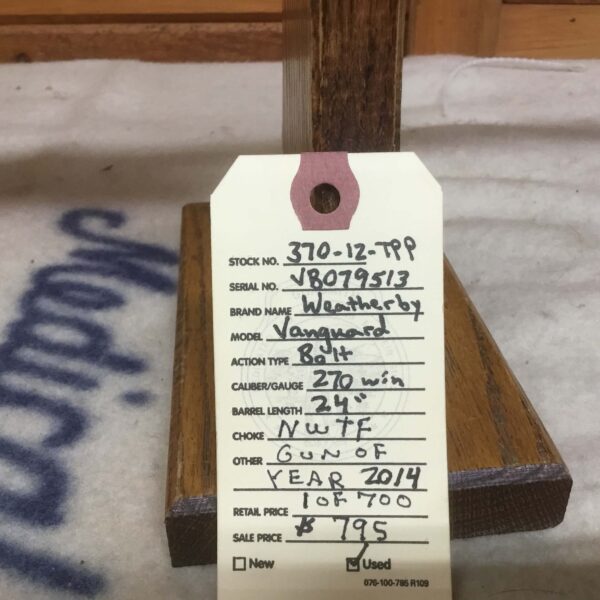 STOCK NO. 370-12-TPP
SERIAL NO. VB079513
BRAND NAME Weatherby
MODEL Vanguard
ACTION TYPE Bolt
CALIBER/GAUGE 270 win
BARREL LENGTH 24"
CHOKE NWTF
OTHER GUN OF
YEAR 2014
RETAIL PRICE 1 OF 700
SALE PRICE $ 795
New Used
070-100-785 R109